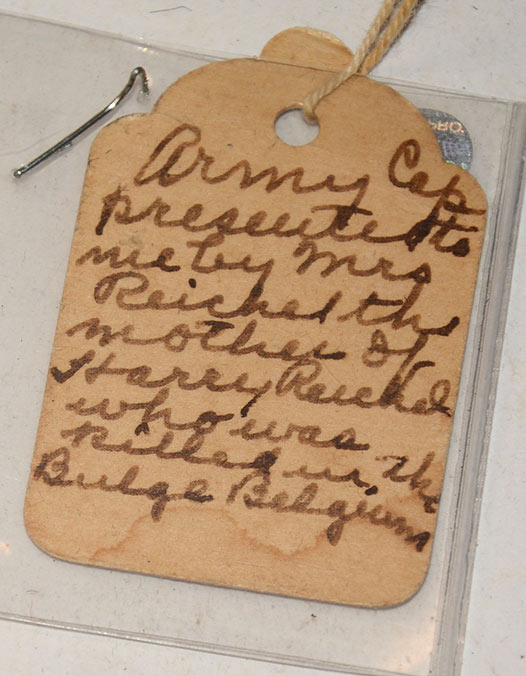 Army Cap
presented to
me by Mrs
Reichel the
mother of
Harry Reichel
who was
killed in the
Bulge Belgium